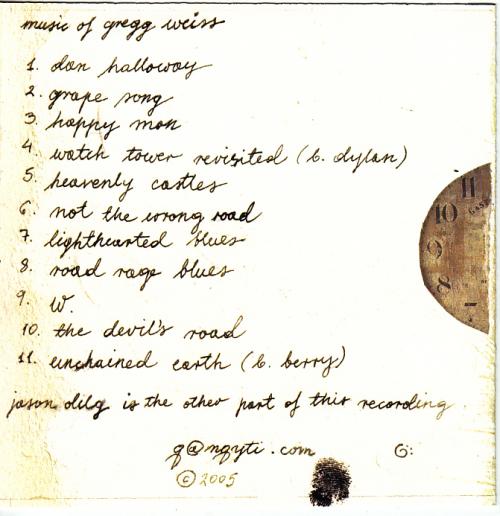 music of gregg weiss
1. dan halloway
2. grape song
3. happy man
4. watch tower revisited (b. dylan)
5. heavenly castles
6. not the wrong road
7. lighthearted blues
8. road rage blues
9. W.
10. the devil's road
11. unchained earth (b. berry)
jason dilg is the other part of this recording
g@nqyti.com G:
© 2005
11
10
9
8